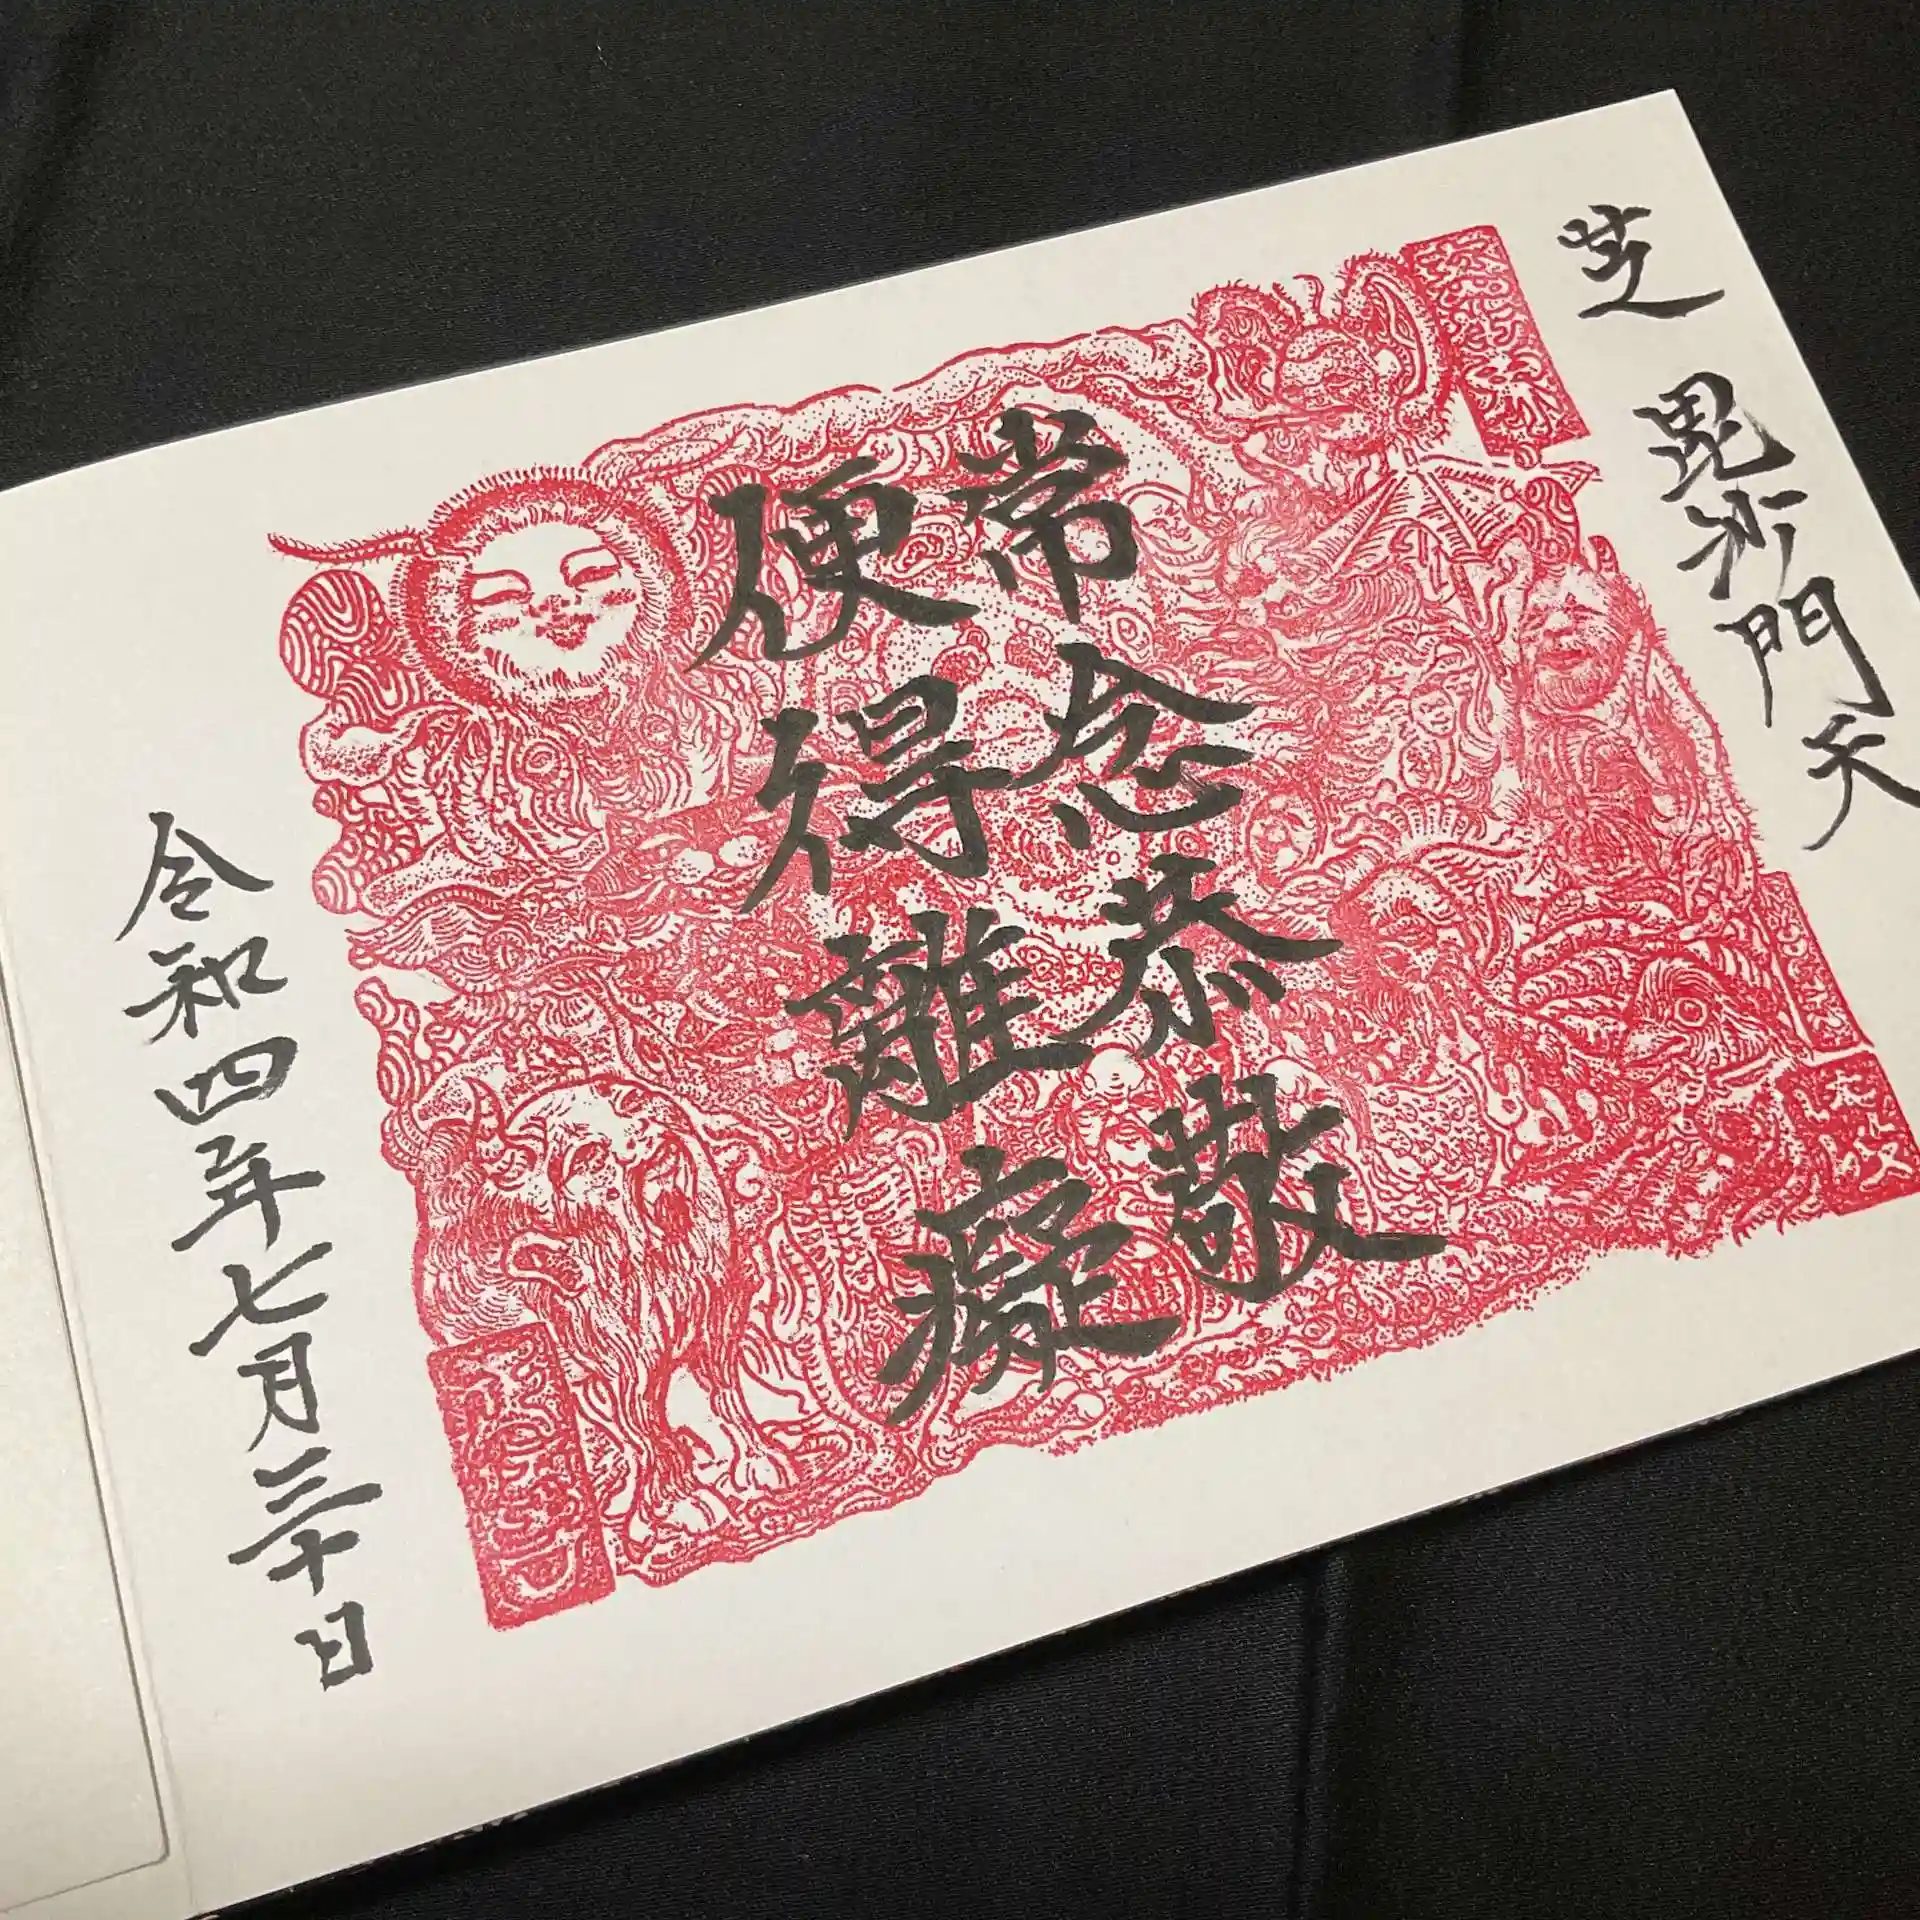 芝 毘沙門天
常念恭敬
便得離癡
令和四年七月三十日